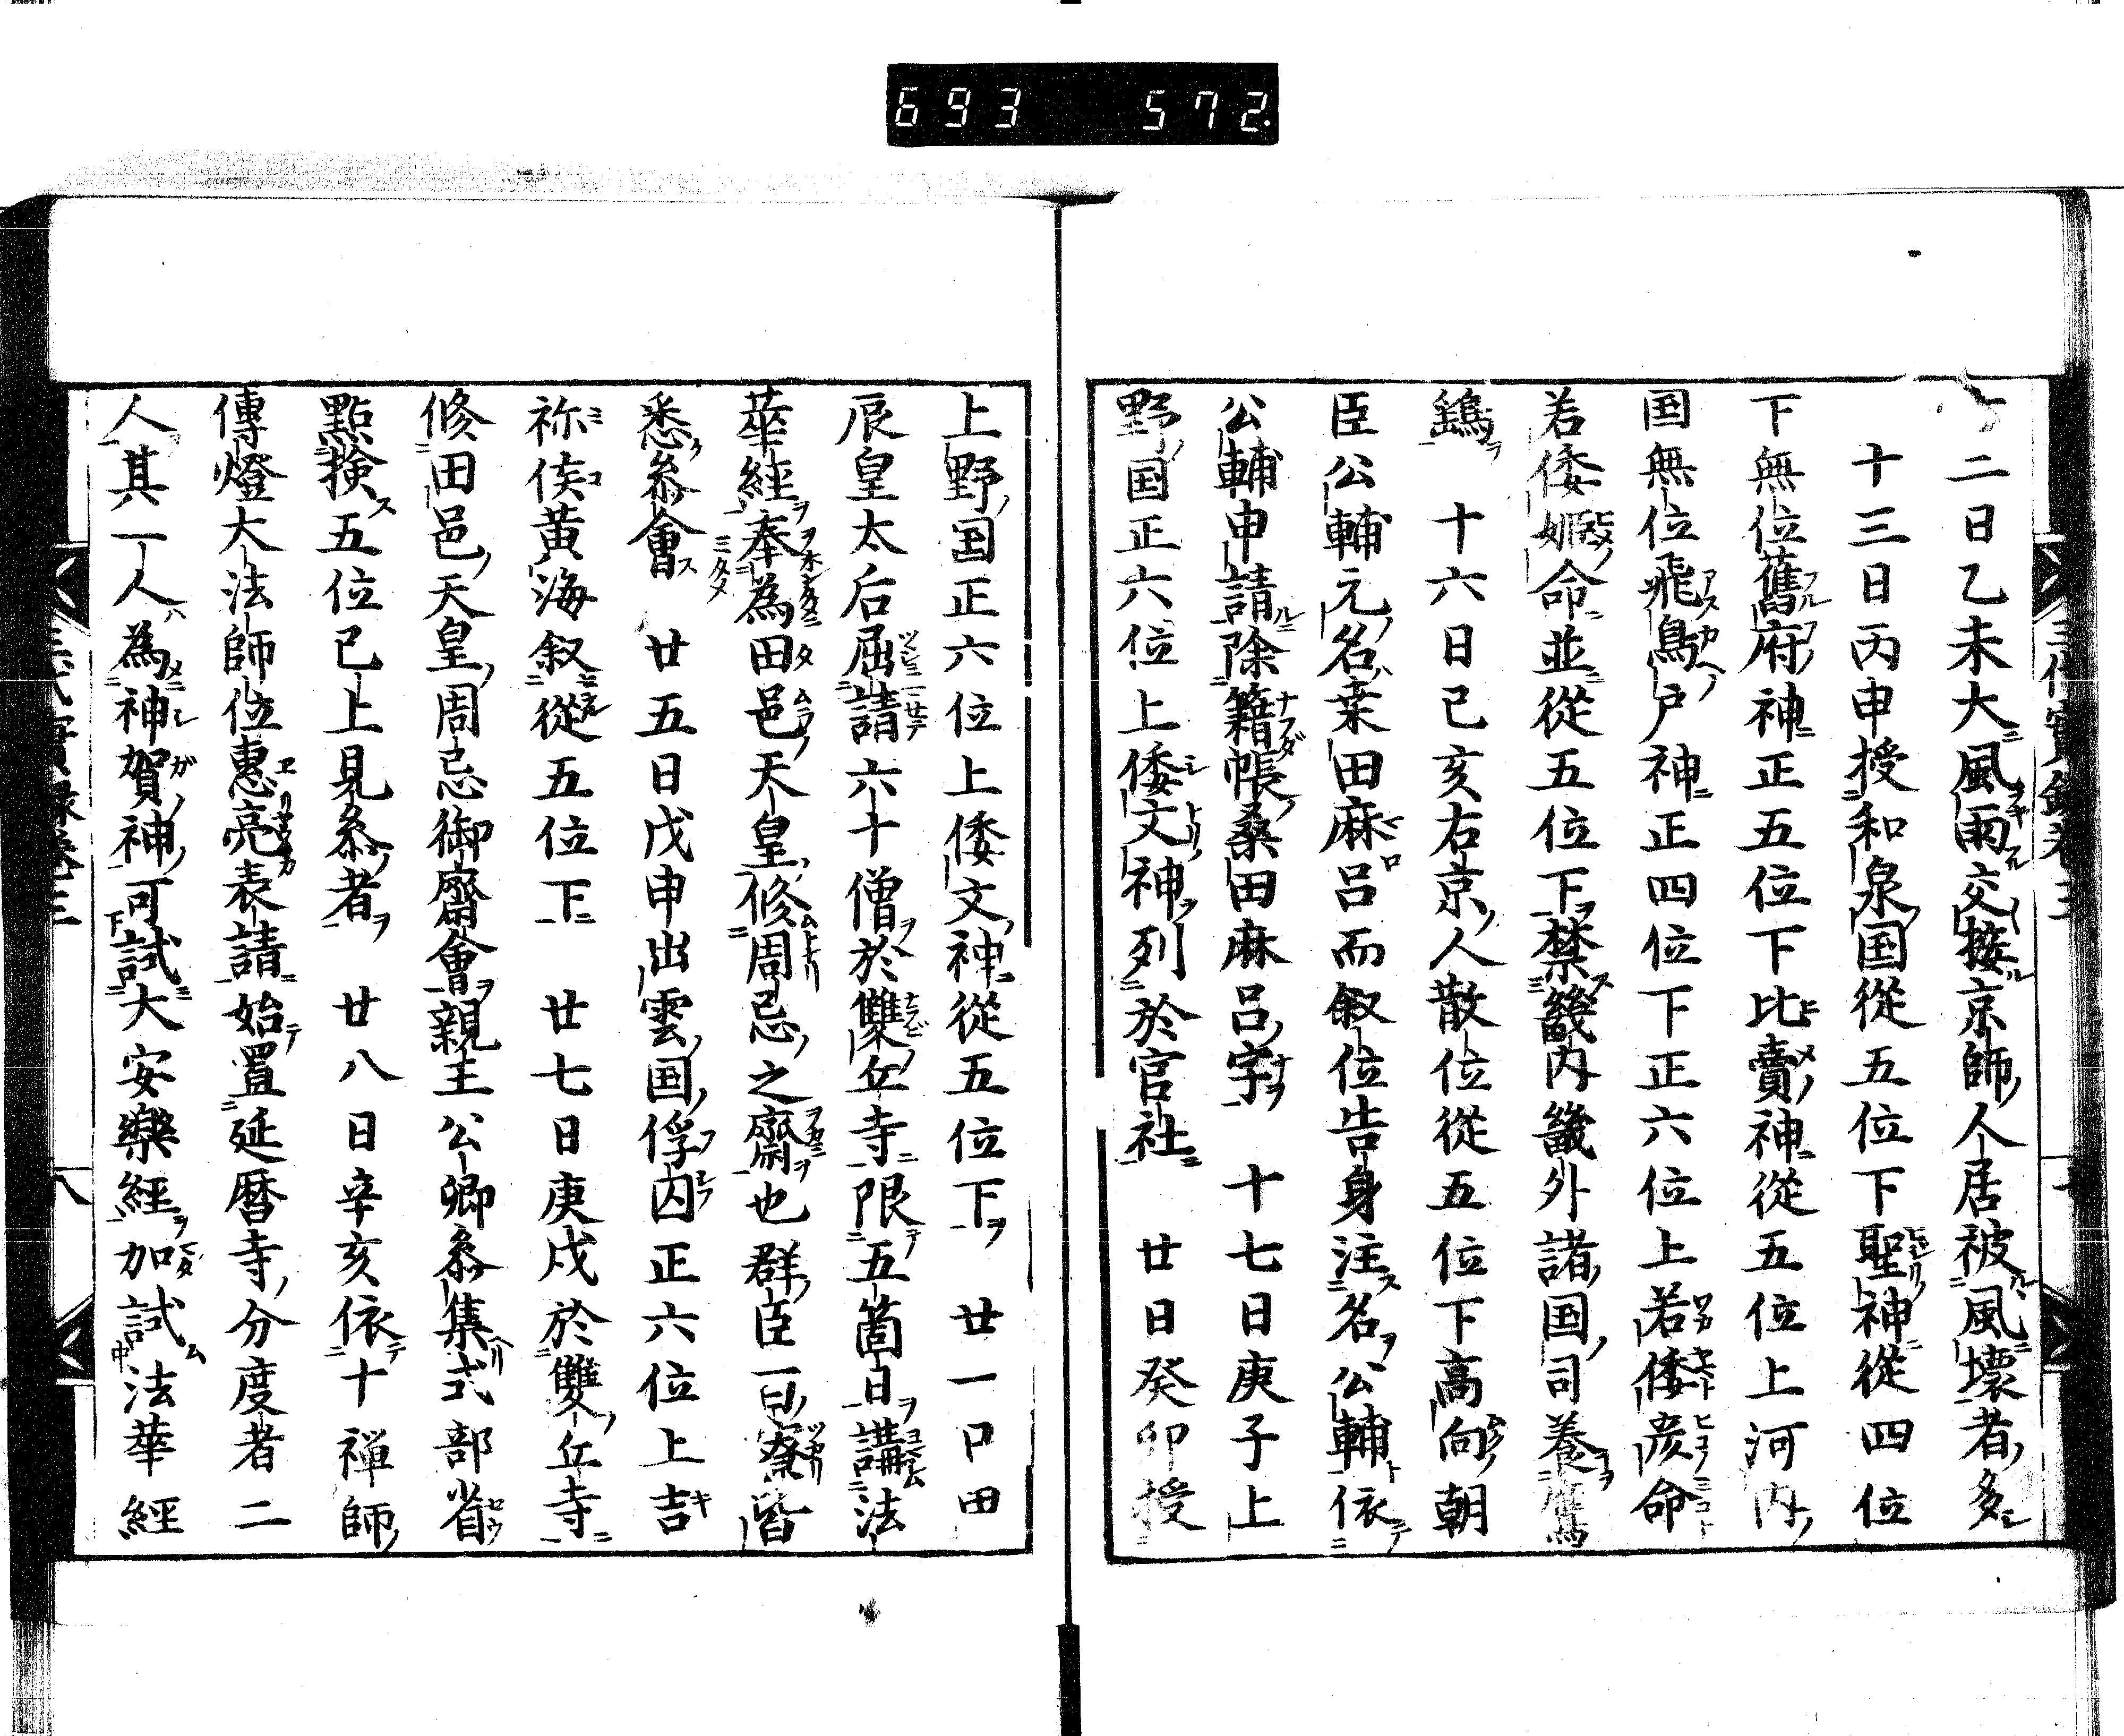 693 572
二日乙未大風雨交接京師人居被風壊者多
十三日丙申授和泉国從五位下聖神從四位
下無位舊府神正五位下比賣神從五位上河内
国無位飛鳥戸神正四位下正六位上若倭彦命
若倭姬命並從五位下禁畿内畿外諸国司養鷹
鷂　十六日己亥右京人散位從五位下高向朝
臣公輔元名桒田麻呂而叙位告身注名公輔依
公輔申請除籍帳桑田麻呂字　十七日庚子上
野国正六位上倭文神列於官社　廿日癸卯授
上野国正六位上倭文神從五位下　廿一日甲
辰皇太后屈請六十僧於雙丘寺限五箇日講法
華經奉為田邑天皇修周忌之齋也群臣百寮皆
悉叅會　廿五日戊申出雲国俘囚正六位上吉
祢侯黄海叙從五位下　廿七日庚戌於雙丘寺
修田邑天皇周忌御齋會親王公卿叅集式部省
點撿五位已上見叅者　廿八日辛亥依十禅師
傳燈大法師位惠亮表請始置延暦寺分度者二
人其一人為神賀神可試大安樂經加試法華經
三代實録卷三　八